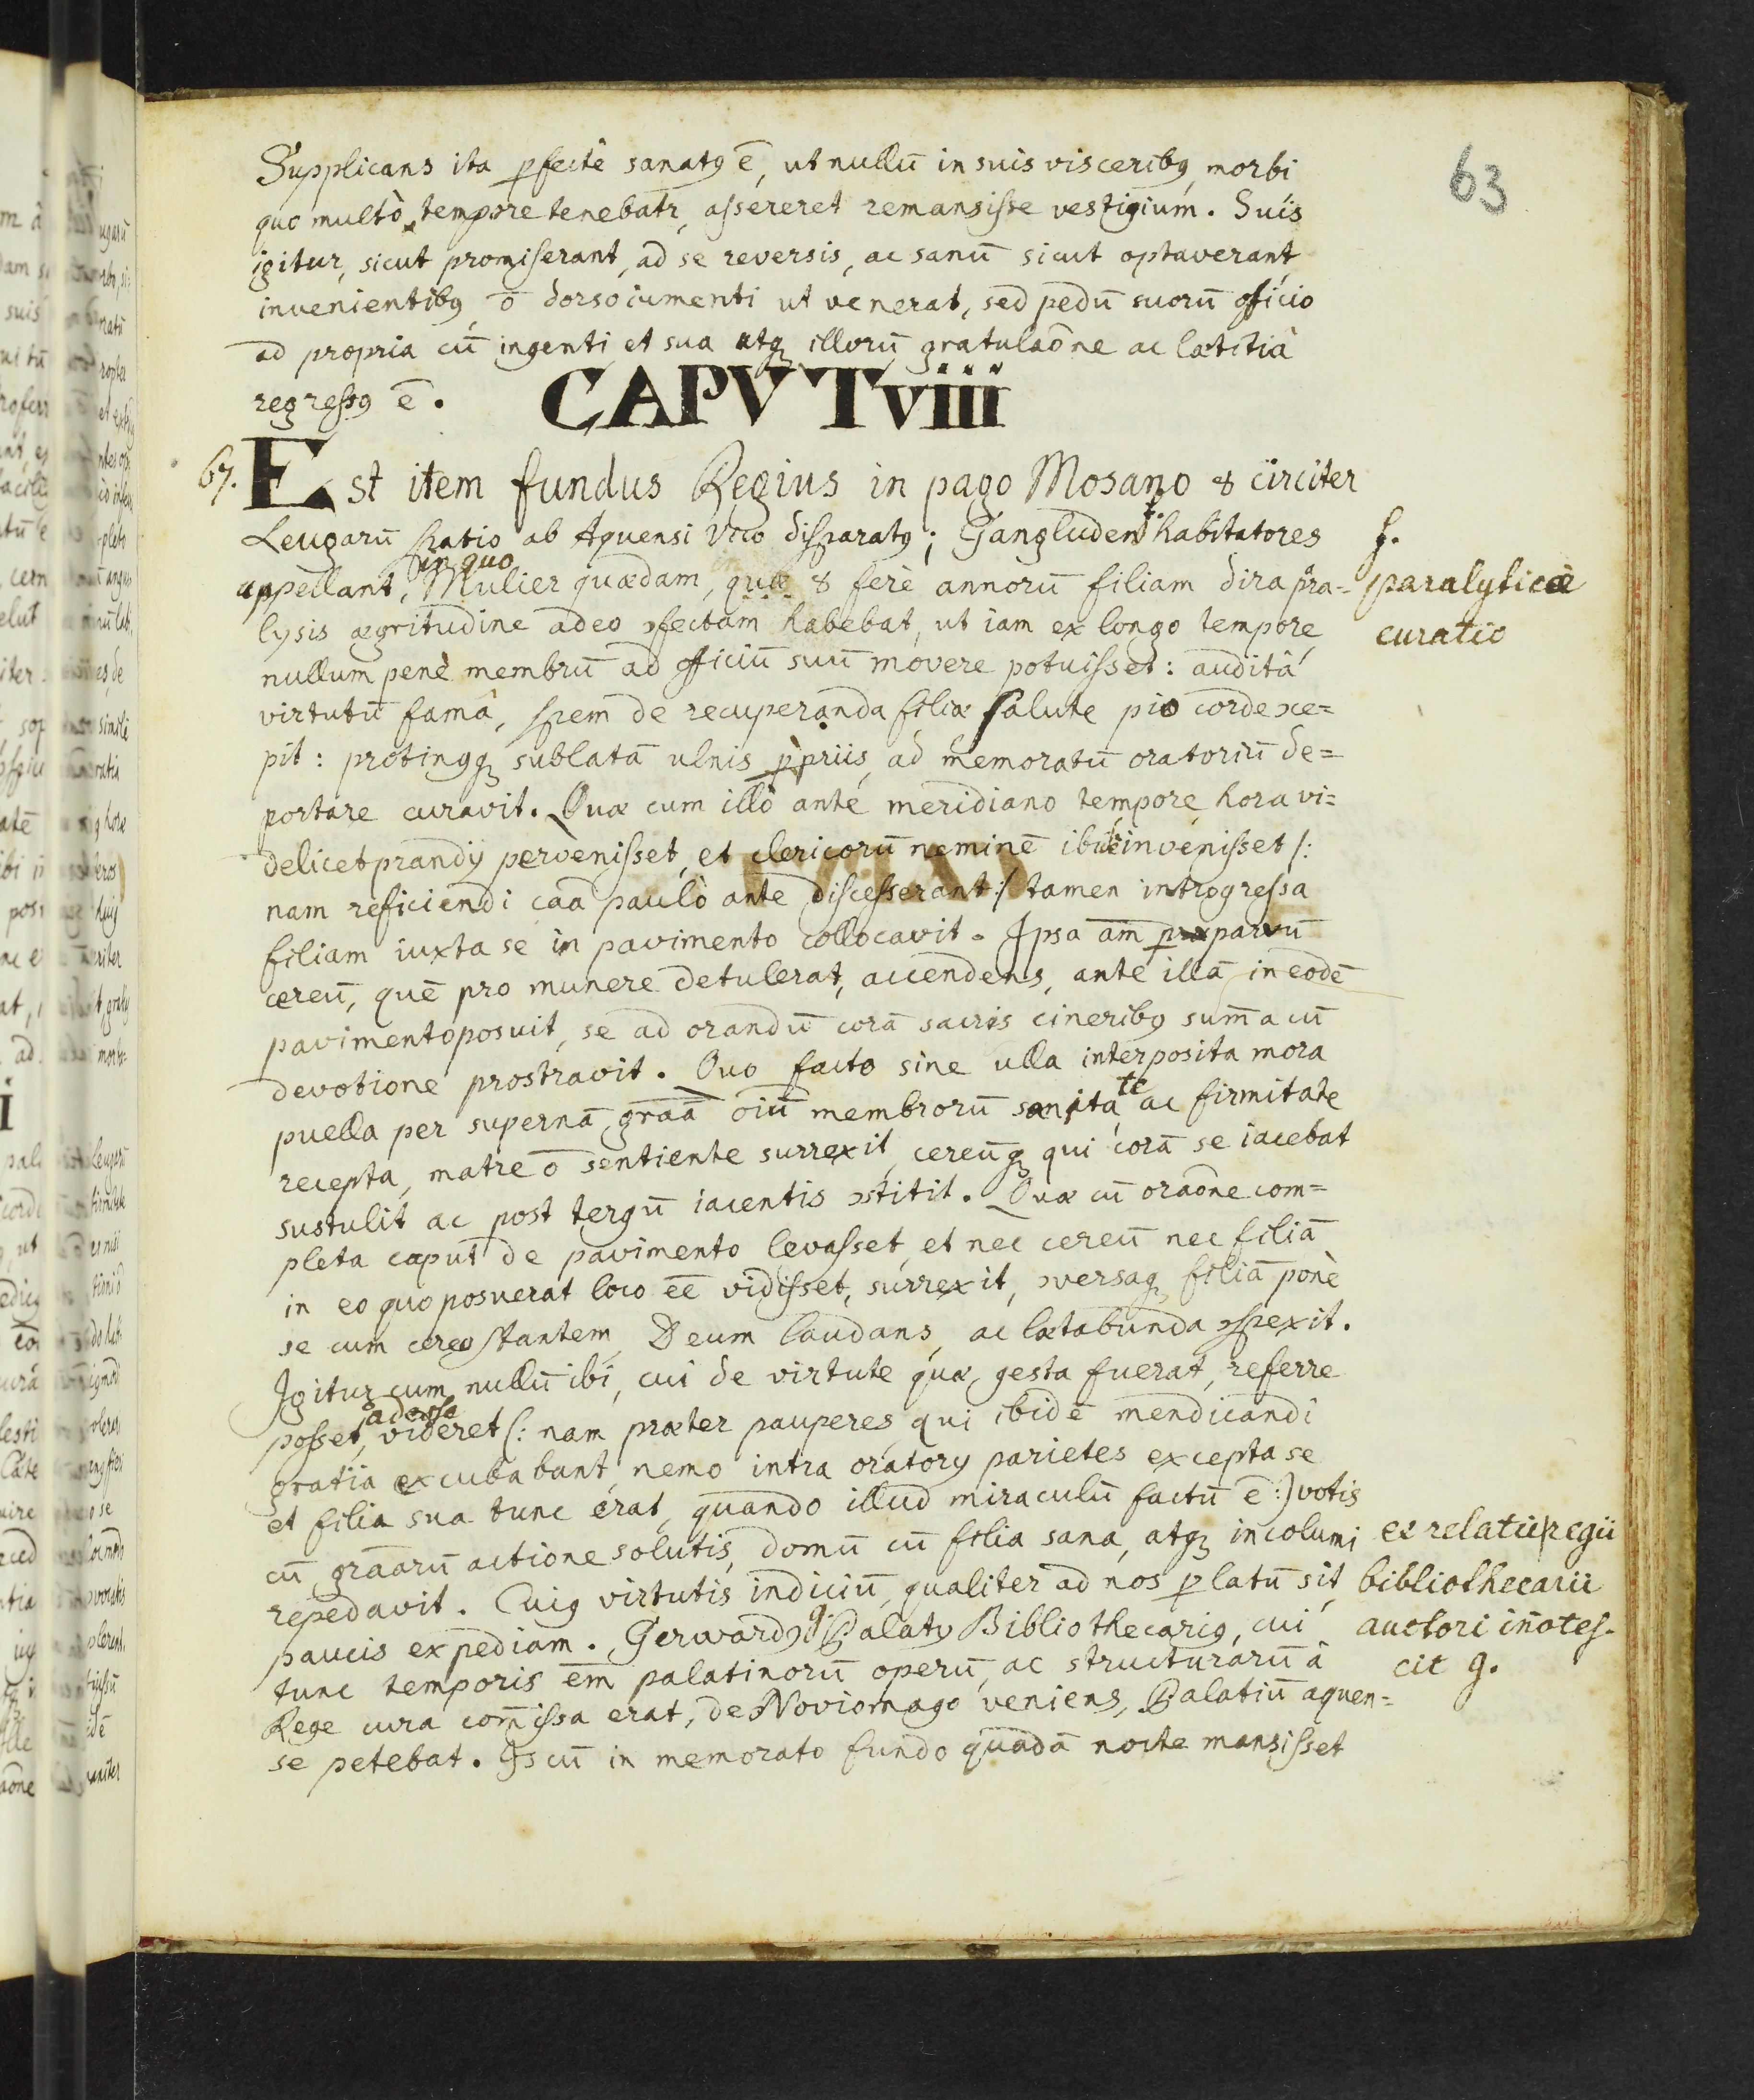 63
Supplicans ita ꝑfectè sanatꝯ ē, ut nullū in suis visceribꝯ morbi
quo multò tempore tenebatr, assereret remansisse vestigium. Suis
igitur, sicut promiserant, ad se reversis, ac sanū sicut optaverant
invenientibꝯ, ō dorso iumenti ut venerat, sed pedū suorū officio
ad propria cū ingenti et sua atqꝫ illorū gratulaōne ac lætitiâ
regressꝯ ē.
CAPVT viii
67. Est item fundus Regius in pago Mosano 8 circiter
Leugarū spatio ab Aquensi vico disparatꝯ; Gangluden habitatores
appellant, in quo Mulier quædam, quæ 8 ferè annorū filiam dira para=
lysis ægritudine adeo ꝯfectam habebat, ut iam ex longo tempore
nullum penè membrū ad officiū suū movere potuisset: auditâ
virtutū famâ, spem de recuperanda filiæ salute pio corde ꝯce=
pit: protinꝯqꝫ sublatā ulnis ꝓpriis, ad memoratū oratoriū de=
portare curavit. Quæ cum illò ante meridiano tempore, hora vi=
delicet prandÿ pervenisset, et clericorū neminē ibi invenisset /:
nam reficiendi caā paulò ante discesserant:/ tamen introgressa
filiam iuxta se in pavimento collocavit. Ipsa am̄ parvū
cereū, quē pro munere detulerat, accendens, ante illā in eodē
pavimento posuit, se ad orandū corā sacris cineribꝯ sum̄a cū
devotione prostravit. Quo facto sine ulla interposita mora
puella per supernā graā oiū membrorū sanitate ac firmitate
recepta, matre ō sentiente surrexit, cereūqꝫ qui corā se iacebat
sustulit ac post tergū iacentis ꝯstitit. Quæ cū oraōne com=
pleta caput de pavimento levasset, et nec cereū nec filiā
in eo quo posuerat loco eē vidisset, surrexit, ꝯversaqꝫ filiā ponè
se cum cereo stantem, Deum laudans, ac lætabunda ꝯspexit.
Igitur cum nullū ibi, cui de virtute quæ gesta fuerat, referre
posset, adesse videret /: nam præter pauperes, qui ibidē mendicandi
gratia excubabant, nemo intra oratorÿ parietes excepta se
et filia sua tunc erat, quando illud miraculū factū ē:/ votis
cū graārū actione solutis, domū cū filia sana, atqꝫ incolumi
repedavit. Cuiꝯ virtutis indiciū, qualiter ad nos ꝑlatū sit,
paucis expediam. Gerwardꝯ Palatÿ Bibliothecariꝯ, cui
tunc temporis em̄ palatinorū operū, ac structurarū à
Rege cura com̄issa erat, de Noviomago veniens, Palatiū aquen=
se petebat. Is cū in memorato fundo quadā nocte mansisset
f.
paralyticæ
curatio
ex relatu regii
bibliothecarii
auctori in̄otes-
cit g.